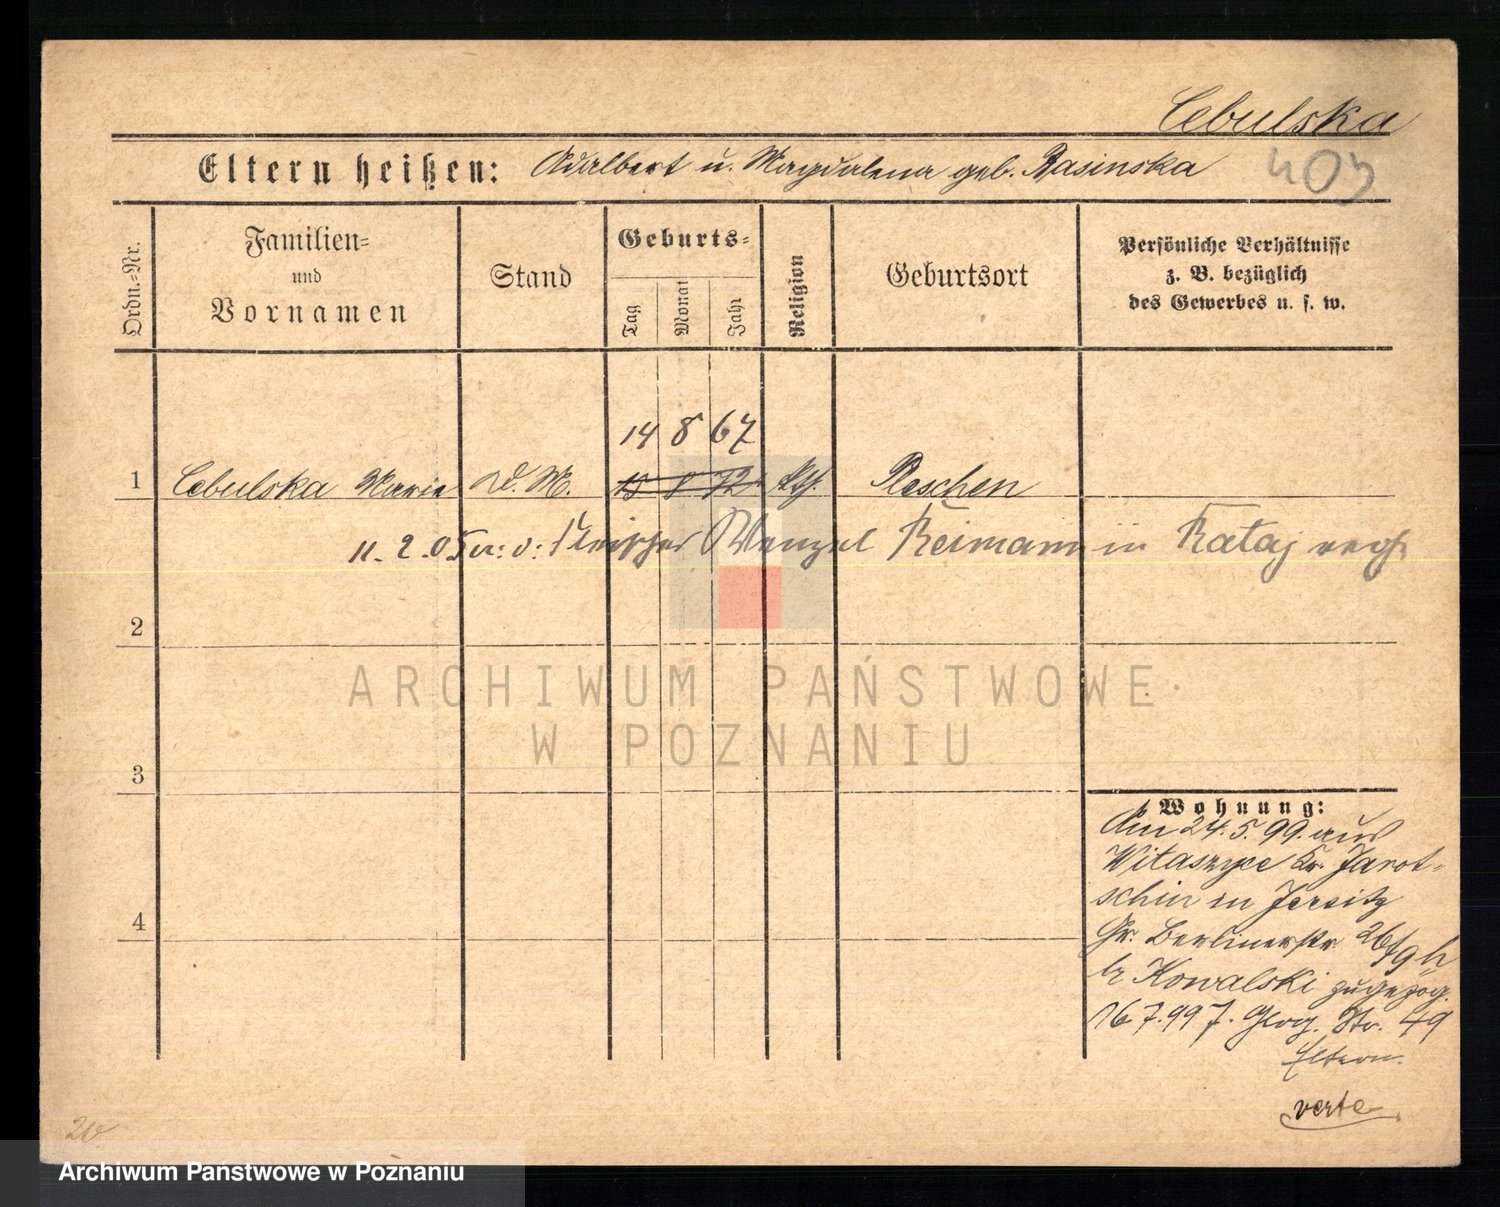 Cebulska
Eltern heißen: Adalbert u. Magdalena geb. Rasinska
Ordn.-Nr.
Familien-
und
Vornamen
Stand
Geburts-
Tag
Monat
Jahr
Religion
Geburtsort
Persönliche Verhältnisse
z. B. bezüglich
des Gewerbes u. s. w.
14 8 67
1 Cebulska Marie d. M. 15 8 72 kth. Pleschen
11.2.05 v: Fleischer Wenzel Reimann in Rataj
2
ARCHIWUM PAŃSTWOWE
W POZNANIU
3
Wohnung:
Am 24.5.99. aus
Witaszyce Kr. Jarot-
schin in Jersitz
Gr. Berlinerstr 26
Kowalski zugezog.
16 7.99 Glog. Str. 49
4
Eltern.
verte
20
Archiwum Państwowe w Poznaniu